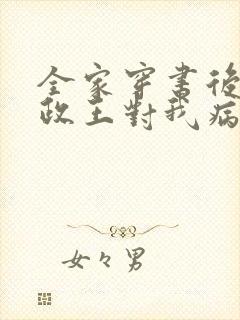 全家穿書後
政王對我病
女々男